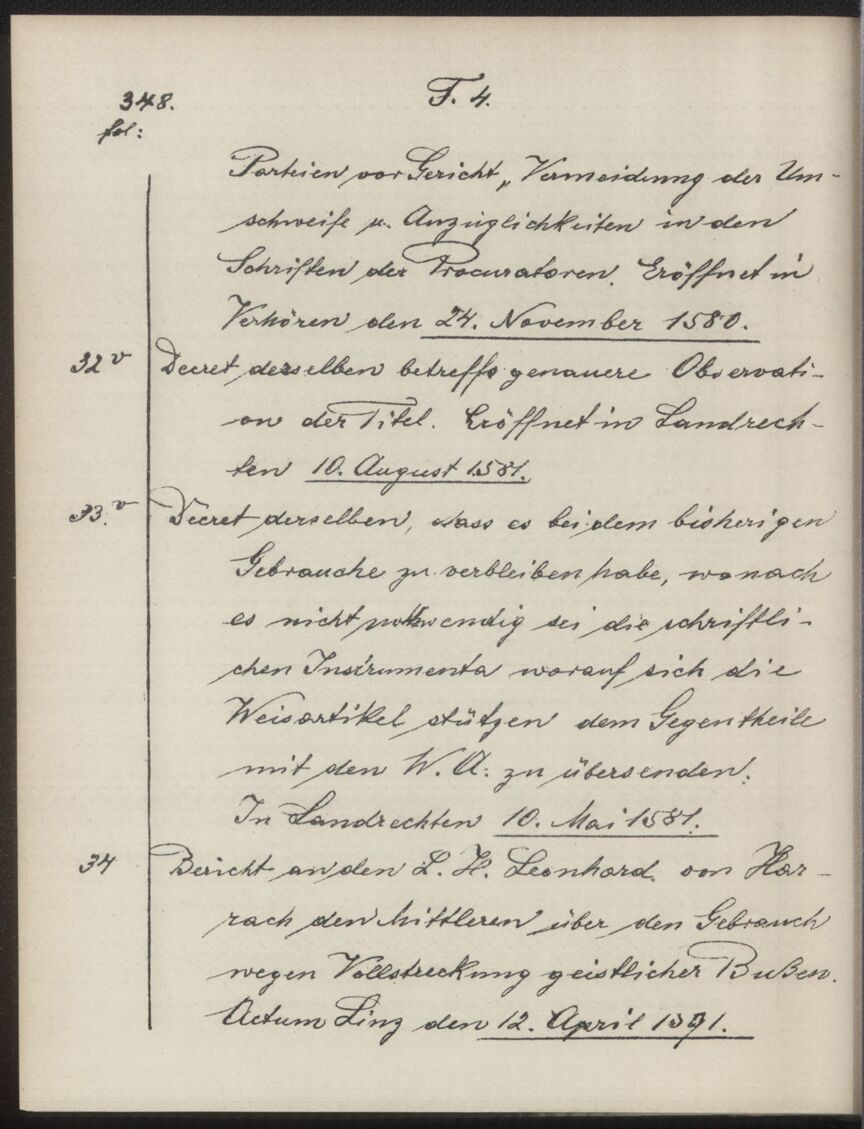 348.
F. 4.
fol:
Parteien vor Gericht, „Vermeidung der Um-
schweife u. Anzüglichkeiten in den
Schriften der Procuratoren. Eröffnet in
Verhören den 24. November 1580.
32v Decret derselben betreffs genauere Observati-
on der Titel. Eröffnet in Landrech-
ten 10. August 1581.
33.v Decret derselben, dass es bei dem bisherigen
Gebrauche zu verbleiben habe, wonach
es nicht nothwendig sei die schriftli-
chen Instrumenta worauf sich die
Weisartikel stützen dem Gegentheile
mit den W. A: zu übersenden.
In Landrechten 10. Mai 1581.
34 Bericht an den L. H. Leonhard von Har-
rach den Mittleren über den Gebrauch
wegen Vollstreckung geistlicher Bußen.
Actum Linz den 12. April 1591.